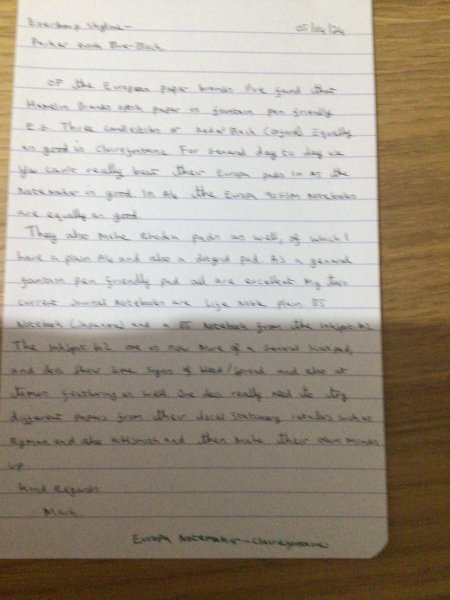 Eversharp Skyline - 05/04/24
Parker Quink Blue-Black
Of the European paper brands I've found that
Hamelin Brands paper is fountain pen friendly
E.g. Three candlesticks or Red n' Black (Oxford) Equally
as good is Clairefontaine. For General day to day use
you can't really beat their Europa pads in A5 the
Notemaker is good In A4 the Europa Notebooks
are equally as good.
They also make Rhodia pads as well, of which I
have a plain A4 and also a dotgrid pad As a general
fountain pen friendly pad all are excellent My two
current Journal Notebooks are Life Noble Plain B5
Notebook (Japanese) and a B5 Notebook from the Inkspot
The Inkspot one is now more of a General Scratchpad,
and does show some signs of bleed/spread and also at
times feathering as well. One does really need to try
different papers from their local stationary retailers such as
Ryman and also WHSmith and then make their own minds
up
Kind Regards
Mark
Europa Notemaker - Clairefontaine